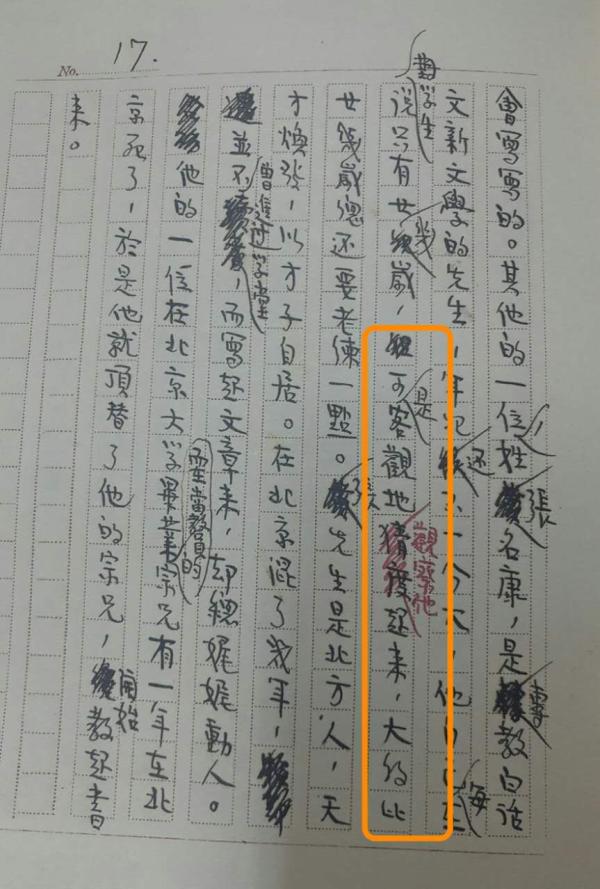 No. 17.
會寫寫的。其他的一位姓張名康，是專教白話
文新文學的先生，年紀还不一分大，他自己在每
對學生說只有廿幾歲，但是可客觀地觀察他猜度起來，大約比
廿幾歲總还要老練一點。張先生是北方人，天
才煥發，以才子自居。在北京混了幾年，
並不曾進過学堂，而寫起文章來，却總娓娓動人。
他的一位在北京大学畢業要當教員的宗兄有一年在北
京死了，於是他就頂替了他的宗兄，開始教起書
来。